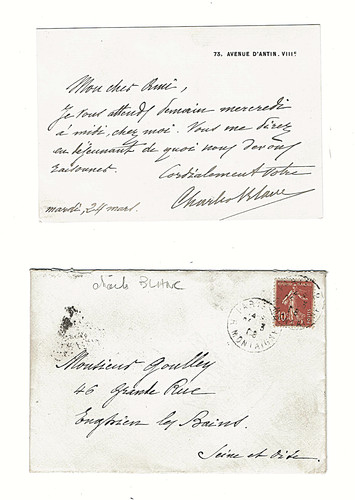 73, AVENUE D'ANTIN. VIIIe.
Mon cher Ami,
Je vous attends demain mercredi
à midi, chez moi. Vous me direz
en déjeunant de quoi nous devons
Cordialement Votre
mardi, 24 mars.
Charles
BLANC
10
PARIS
R MONTAIGNE
Monsieur Goulley
46 Grande Rue
Enghien les Bains.
Seine et Oise